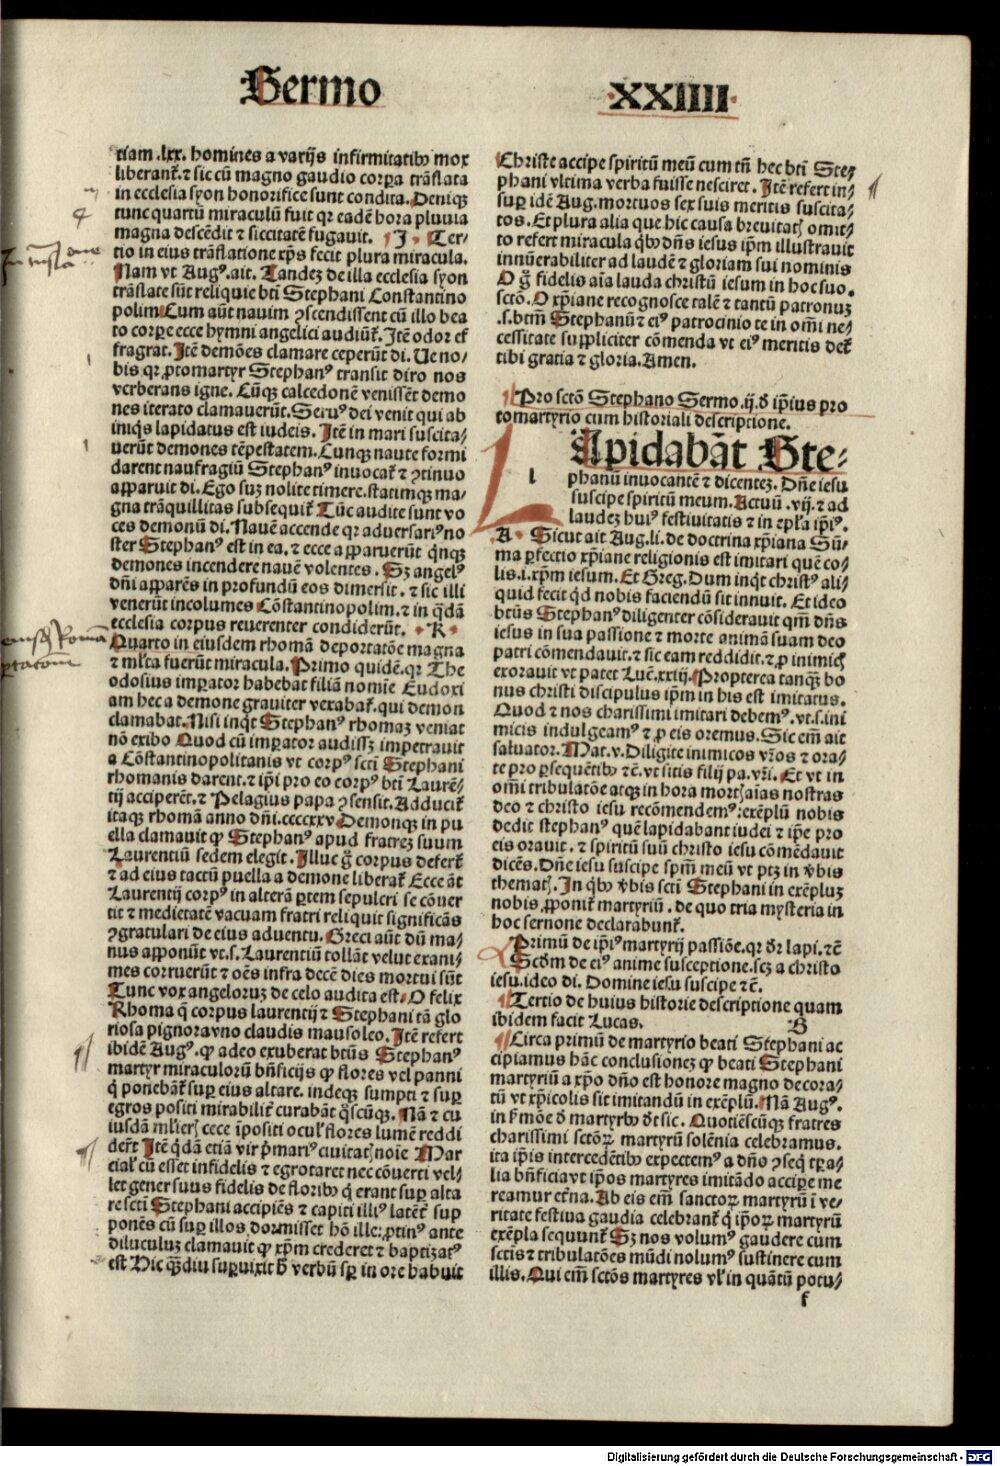 Sermo
XXIIII
tiam .lxx. homines a varijs infirmitatibꝰ mox
liberant᷑. ⁊ sic cũ magno gaudio corpa trãslata
in ecclesia syon honorifice sunt condita. Deniqꝫ
tunc quartũ miraculũ fuit qꝛ eadẽ hora pluuia
magna descẽdit ⁊ siccitatẽ fugauit. ¶ J. Ter⸗
tio in eius trãslatione xp̃s fecit plura miracula.
Nam vt Augꝰ. ait. Tandeꝫ de illa ecclesia syon
trãslate sũt reliquie bti Stephani Constantino
polim Cum aũt nauim ꝯscendissent cũ illo bea
to corpe ecce hymni angelici audiũt᷑. Itẽ odor ef
fragrat. Itẽ demões clamare ceperũt di. Ue no⸗
bis qꝛ ꝓtomartyr Stephanꝰ transit diro nos
verberans igne. Cũqꝫ calcedonẽ venissẽt demo
nes iterato clamauerũt. Seruꝰ dei venit qui ab
iniqꝭ lapidatus est iudeis. Itẽ in mari suscita⸗
uerũt demones tẽpestatem. Cunqꝫ naute formi
darent naufragiũ Stephanꝰ inuocat᷑ ⁊ ꝯtinuo
apparuit di. Ego suꝫ nolite timere. statimqꝫ ma⸗
gna trãquillitas subsequit᷑ Tũc audite sunt vo
ces demonũ di. Nauẽ accende qꝛ aduersariꝰ no
ster Stephanꝰ est in ea. ⁊ ecce apparuerũt qͥnqꝫ
demones incendere nauẽ volentes. Sꝫ angelꝰ
dñi apparẽs in profundũ eos dimersit. ⁊ sic illi
venerũt incolumes Cõstantinopolim. ⁊ in qͣdã
ecclesia corpus reuerenter condiderũt. K
Quarto in eiusdem rhomã deportatõe magna
⁊ mĺta fuerũt miracula. Primo quidẽ. qꝛ The
odosius impator habebat filiã nomĩe Eudoxi
am hec a demone grauiter vexabat᷑. qui demon
clamabat. Nisi inqͭ Stephanꝰ rhomaꝫ veniat
nõ exibo Quod cũ impator audissꝫ impetrauit
a Cõstantinopolitanis vt corpꝰ scti Stephani
rhomanis darent. ⁊ ip̃i pro eo corpꝰ bti Laurẽ⸗
tij acciperẽt. ⁊ Pelagius papa ꝯsensit. Adducit᷑
itaqꝫ rhomã anno dñi. ccccxxv Demonqꝫ in pu
ella clamauit ꝙ Stephanꝰ apud fratreꝫ suum
Laurentiũ sedem elegit. Illuc g̃ corpus defert᷑
⁊ ad eius tactũ puella a demone liberat᷑ Ecce ãt
Laurentij corpꝰ in alterã ptem sepulcri se cõuer
tit ⁊ medietatẽ vacuam fratri reliquit significãs
ꝯgratulari de eius aduentu. Greci aũt dũ ma⸗
nus apponũt vt. s. Laurentiũ tollãt velut exani⸗
mes corruerũt ⁊ oẽs infra decẽ dies mortui sũt
Tunc vox angeloruꝫ de celo audita est. O felix
Rhoma q̃ corpus laurentij ⁊ Stephani tã glo
riosa pignora vno claudis mausoleo. Itẽ refert
ibidẽ Augꝰ. ꝙ adeo exuberat btũs Stephanꝰ
martyr miraculorũ bñficijs ꝙ flores vel panni
q̃ ponebãt᷑ sup eius altare. indeqꝫ sumpti ⁊ sup
egros positi mirabilit᷑ curabãt qͦscũqꝫ. Nã ⁊ cu
iusdã mĺieꝝ cece ĩpositi oculꝭ flores lumẽ reddi
derũt Itẽ qͥdã etiã vir pͥmariꝰ ciuitatꝭ noĩe Mar
cialꝭ cũ esset infidelis ⁊ egrotaret nec cõuerti vel⸗
let gener suus fidelis de floribꝰ q̃ erant sup alta
re scti Stephani accipiẽs ⁊ capiti illiꝰ latẽt᷑ sup
ponẽs cũ sup illos dormisset hõ ille. ꝓtinꝰ ante
diluculuꝫ clamauit ꝙ xp̃m crederet ⁊ baptizatꝰ
est Hic qͣdiu supuixit ħ verbũ sp̃ in ore habuit
Christe accipe spiritũ meũ cum tñ hec bti Ste⸗
phani vltima verba fuisse nesciret. Itẽ refert in⸗
sup idẽ Aug. mortuos sex suis meritis suscita⸗
tos. Et plura alia que hic causa breuitatꝭ omit⸗
to refert miracula qͥbꝰ dñs iesus ip̃m illustrauit
innũerabiliter ad laudẽ ⁊ gloriam sui nominis
O g̃ fidelis aĩa lauda christũ iesum in hoc suo
sctõ. O xp̃iane recognosce talẽ ⁊ tantũ patronuꝫ
.s. btm̃ Stephanũ ⁊ eiꝰ patrocinio te in om̃i ne⸗
cessitate suppliciter cõmenda vt eiꝰ meritis det᷑
tibi gratia ⁊ gloria. Amen.
¶ Pro sctõ Stephano Sermo .ij. ð ip̃ius pro
tomartyrio cum historiali descriptione.
LApidabãt Ste⸗
phanũ inuocantẽ ⁊ dicenteꝫ. Dñe iesu
suscipe spiritũ meum. Actuũ .vij. ⁊ ad
laudeꝫ huiꝰ festiuitatis ⁊ in ep̃ĺa ip̃iꝰ.
A. Sicut ait Aug. li. de doctrina xp̃iana Sũ⸗
ma pfectio xp̃iane religionis est imitari quẽ co⸗
lis .i. xp̃m iesum. Et Greg. Dum inqͭ christꝰ ali⸗
quid fecit qͥd nobis faciendũ sit innuit. Et ideo
btũs Stephanꝰ diligenter cõsiderauit qm̃ dñs
iesus in sua passione ⁊ morte animã suam deo
patri cõmendauit. ⁊ sic eam reddidit. ⁊ p inimicꝭ
exorauit vt patet Luc̃. xxiij. Propterea tanqꝫ bo
nus christi discipulus ip̃m in his est imitatus.
Quod ⁊ nos charissimi imitari debemꝰ. vt. s. ini
micis indulgeamꝰ ⁊ ꝓ eis oremus. Sic em̃ ait
saluator. Mat. v. Diligite inimicos vr̃os ⁊ ora⸗
te pro psequẽtibꝰ ⁊c̃. vt sitis filij pa. vr̃i. Et vt in
om̃i tribulatõe atqꝫ in hora mortꝭ aĩas nostras
deo ⁊ christo iesu recõmendemꝰ: exẽplũ nobis
dedit stephanꝰ quẽ lapidabant iudei ⁊ ip̃e pro
eis orauit. ⁊ spiritũ suũ christo iesu cõmẽdauit
dicẽs. Dñe iesu suscipe sp̃m meũ vt ptꝫ in v̾bis
thematꝭ. In qͥbꝰ v̾bis scti Stephani in exẽpluꝫ
nobis ꝓponit᷑ martyriũ. de quo tria mysteria in
hoc sermone declarabunt᷑.
Primũ de ip̃iꝰ martyrij passiõe. qꝛ dr̃ lapi. ⁊c̃
Scðm de eiꝰ anime susceptione. scꝫ a christo
iesu. ideo di. Domine iesu suscipe ⁊c̃.
¶ Tertio de huius historie descriptione quam
ibidem facit Lucas. B
¶ Circa primũ de martyrio beati Stephani ac
cipiamus hãc conclusioneꝫ ꝙ beati Stephani
martyriũ a xp̃o dño est honore magno decora⸗
tũ vt xp̃icolis sit imitandũ in exẽplũ. Nã Augꝰ.
in f᷑mõe ð martyrbꝰ dt sic. Quotiẽscũqꝫ fratres
charissimi sctõꝝ martyrũ solẽnia celebramus.
ita ip̃is intercedẽtibꝰ expectemꝰ a dño ꝯseq̃ tp̃a⸗
lia bñficia vt ip̃os martyres imitãdo accipe me
reamur et̃na. Ab eis em̃ sanctoꝝ martyrũ ĩ ve⸗
ritate festiua gaudia celebrant᷑ q̃ ip̃oꝝ martyrũ
exẽpla sequunt᷑ Sꝫ nos volumꝰ gaudere cum
sctis ⁊ tribulatões mũdi nolumꝰ sustinere cum
illis. Qui em̃ sctõs martyres vĺ in quãtũ potu⸗
f
Digitalisierung gefördert durch die Deutsche Forschungsgemeinschaft - DFG